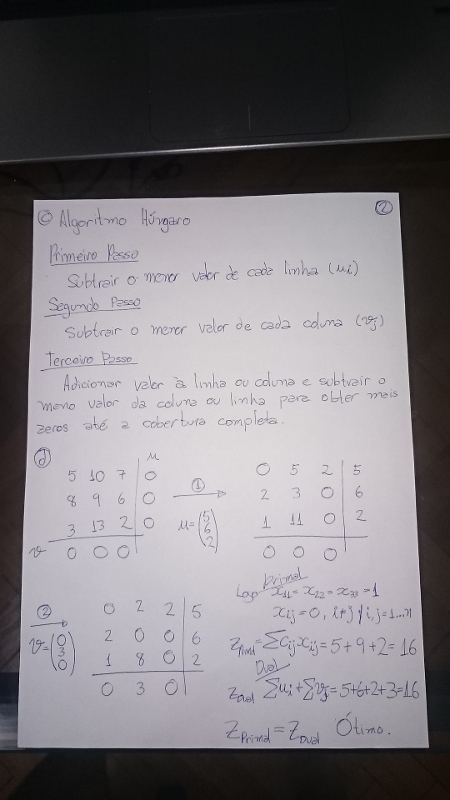 ②
© Algoritmo Húngaro
Primeiro Passo
Subtrair o menor valor de cada linha (ui)
Segundo Passo
Subtrair o menor valor de cada coluna (vj)
Terceiro Passo
Adicionar valor à linha ou coluna e subtrair o
meno valor da coluna ou linha para obter mais
zeros até a cobertura completa.
d
u
5 10 7 0
8 9 6 0
3 13 2 0
v 0 0 0
① →
u = (5 6 2)
0 5 2 5
2 3 0 6
1 11 0 2
0 0 0
② →
v = (0 3 0)
0 2 2 5
2 0 0 6
1 8 0 2
0 3 0
Primal
Logo x11 = x22 = x33 = 1
xij = 0, i≠j ∀i,j = 1...n
ZPrimal = ∑cij xij = 5 + 9 + 2 = 16
Dual
ZDual ∑ui + ∑vj = 5+6+2+3 = 16
ZPrimal = ZDual Ótimo.